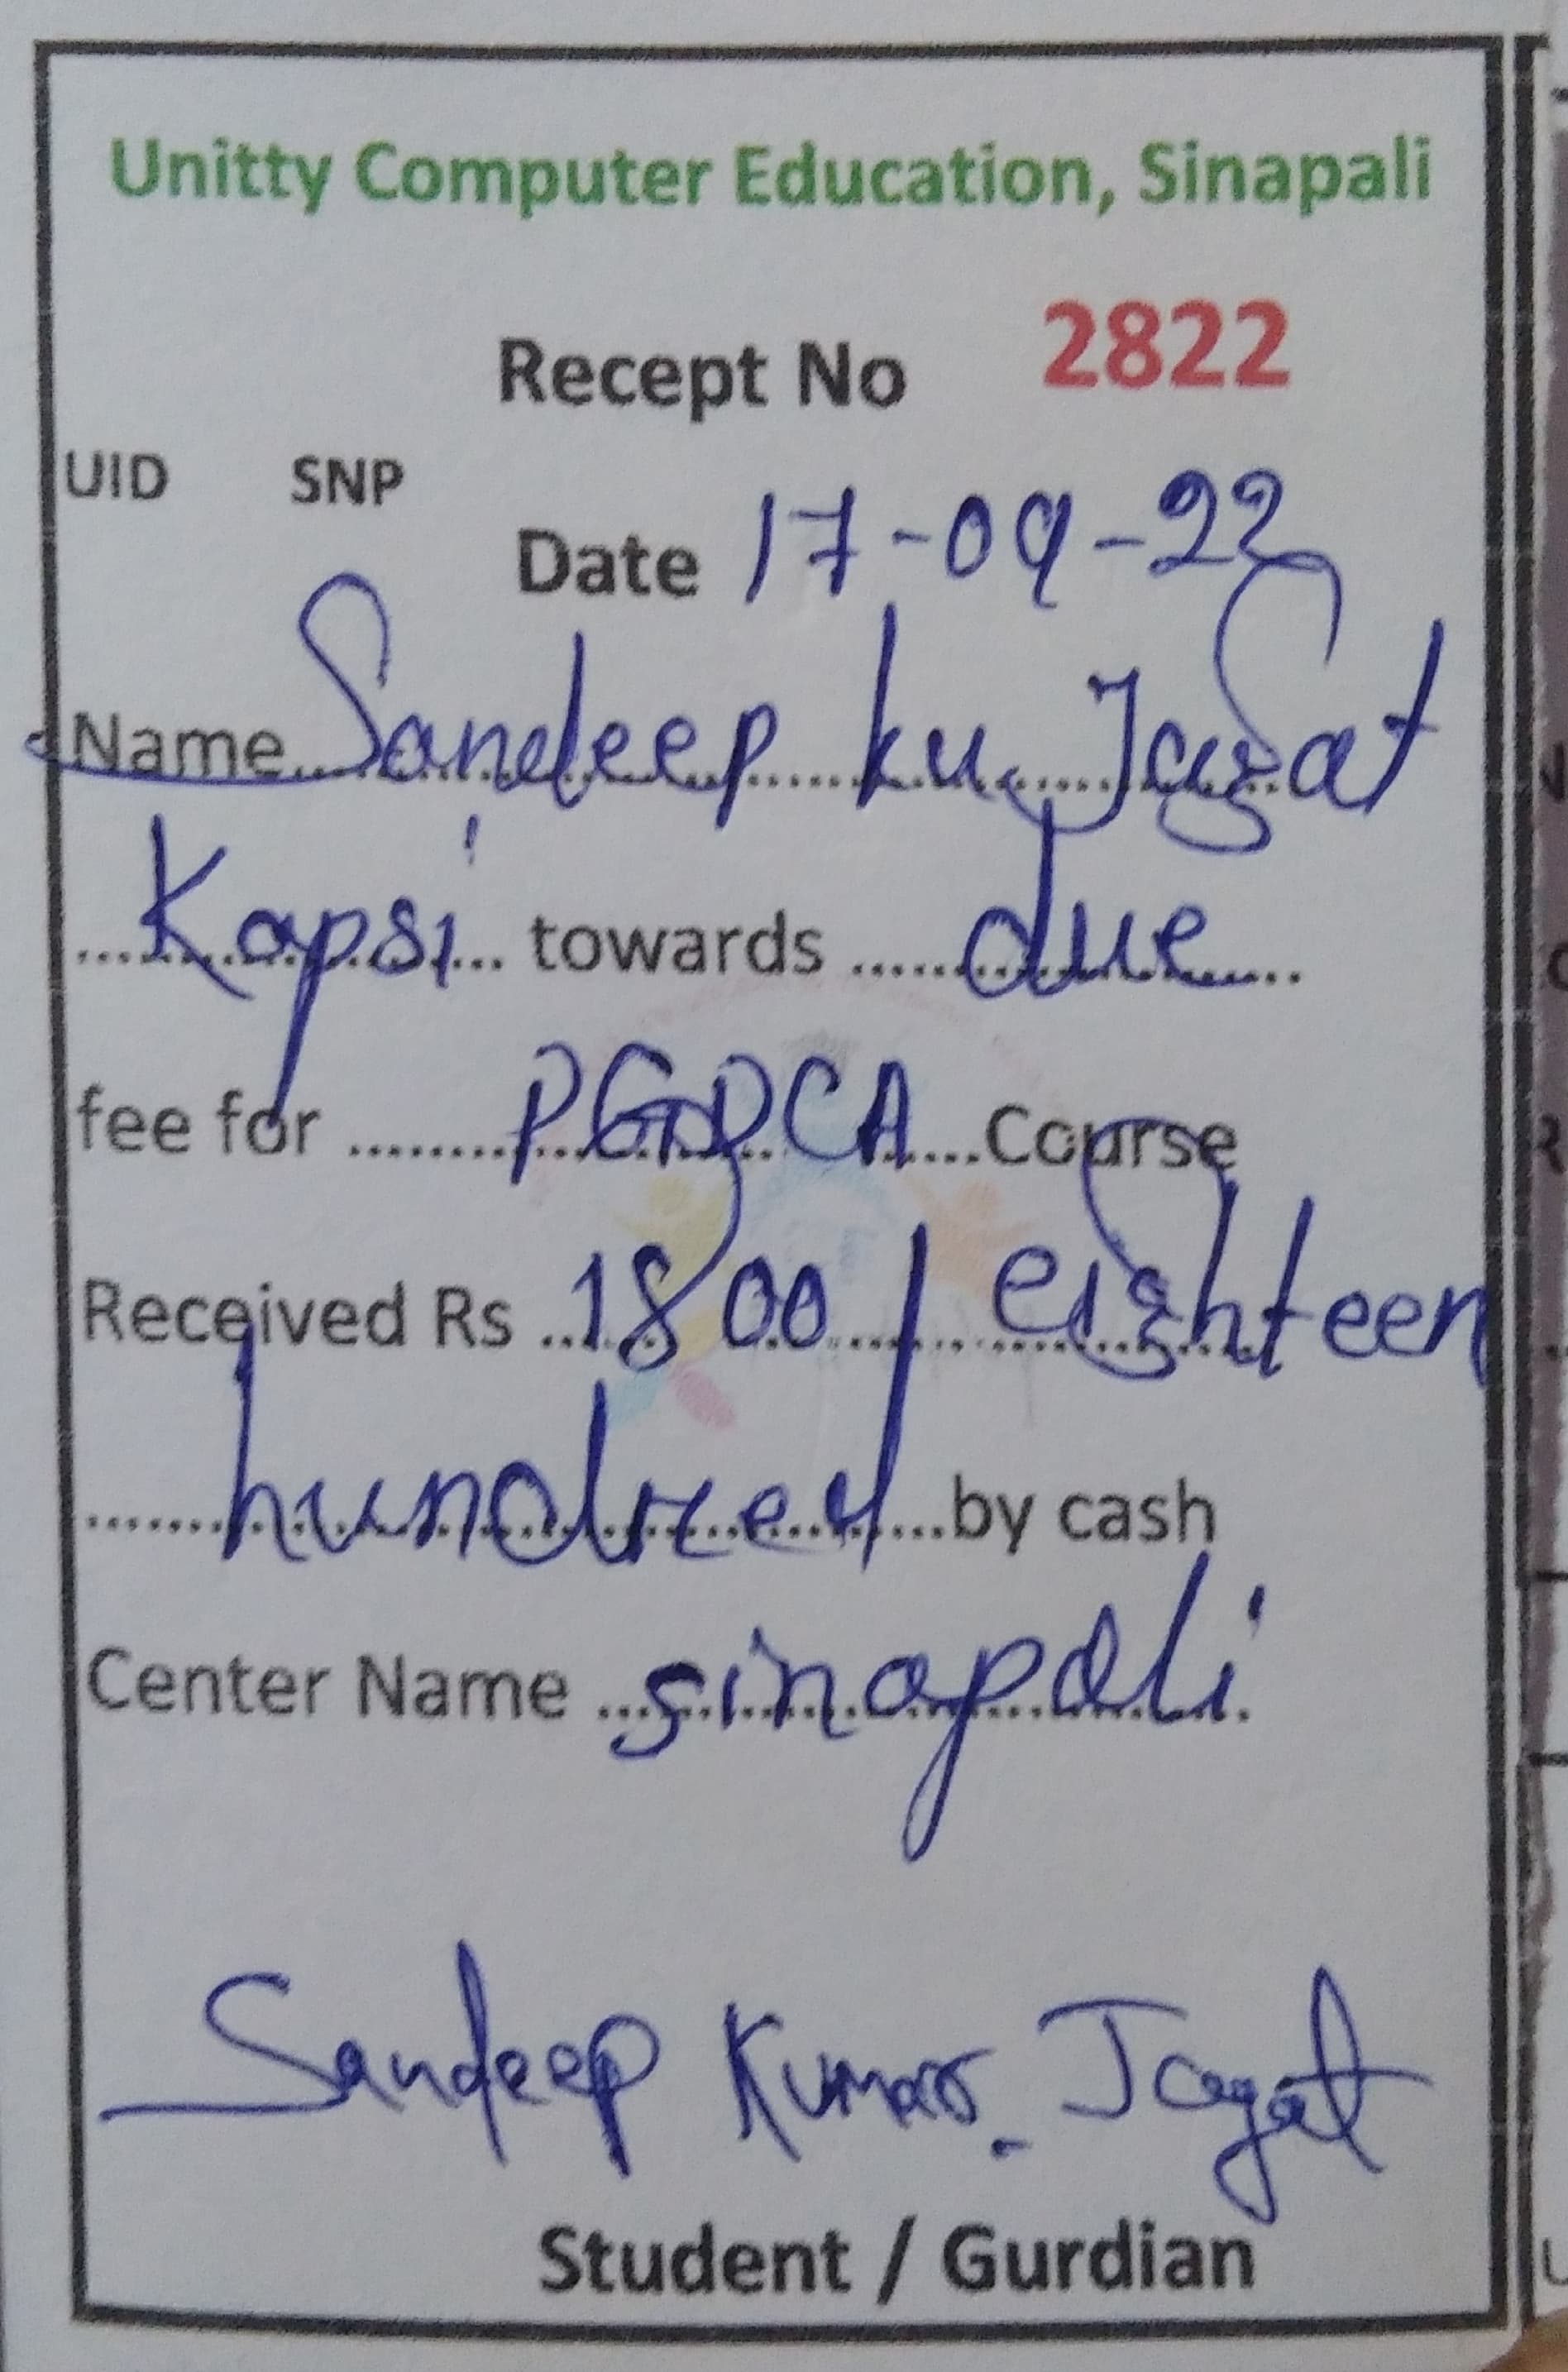 Unitty Computer Education, Sinapali
Recept No 2822
UID SNP
Date 17-09-22
Name Sandeep ku Jagat
Kapsi towards due
fee for PGDCA Course
Received Rs 1800/ eighteen
hundred by cash
Center Name sinapali
Sandeep Kumar Jagat
Student / Gurdian